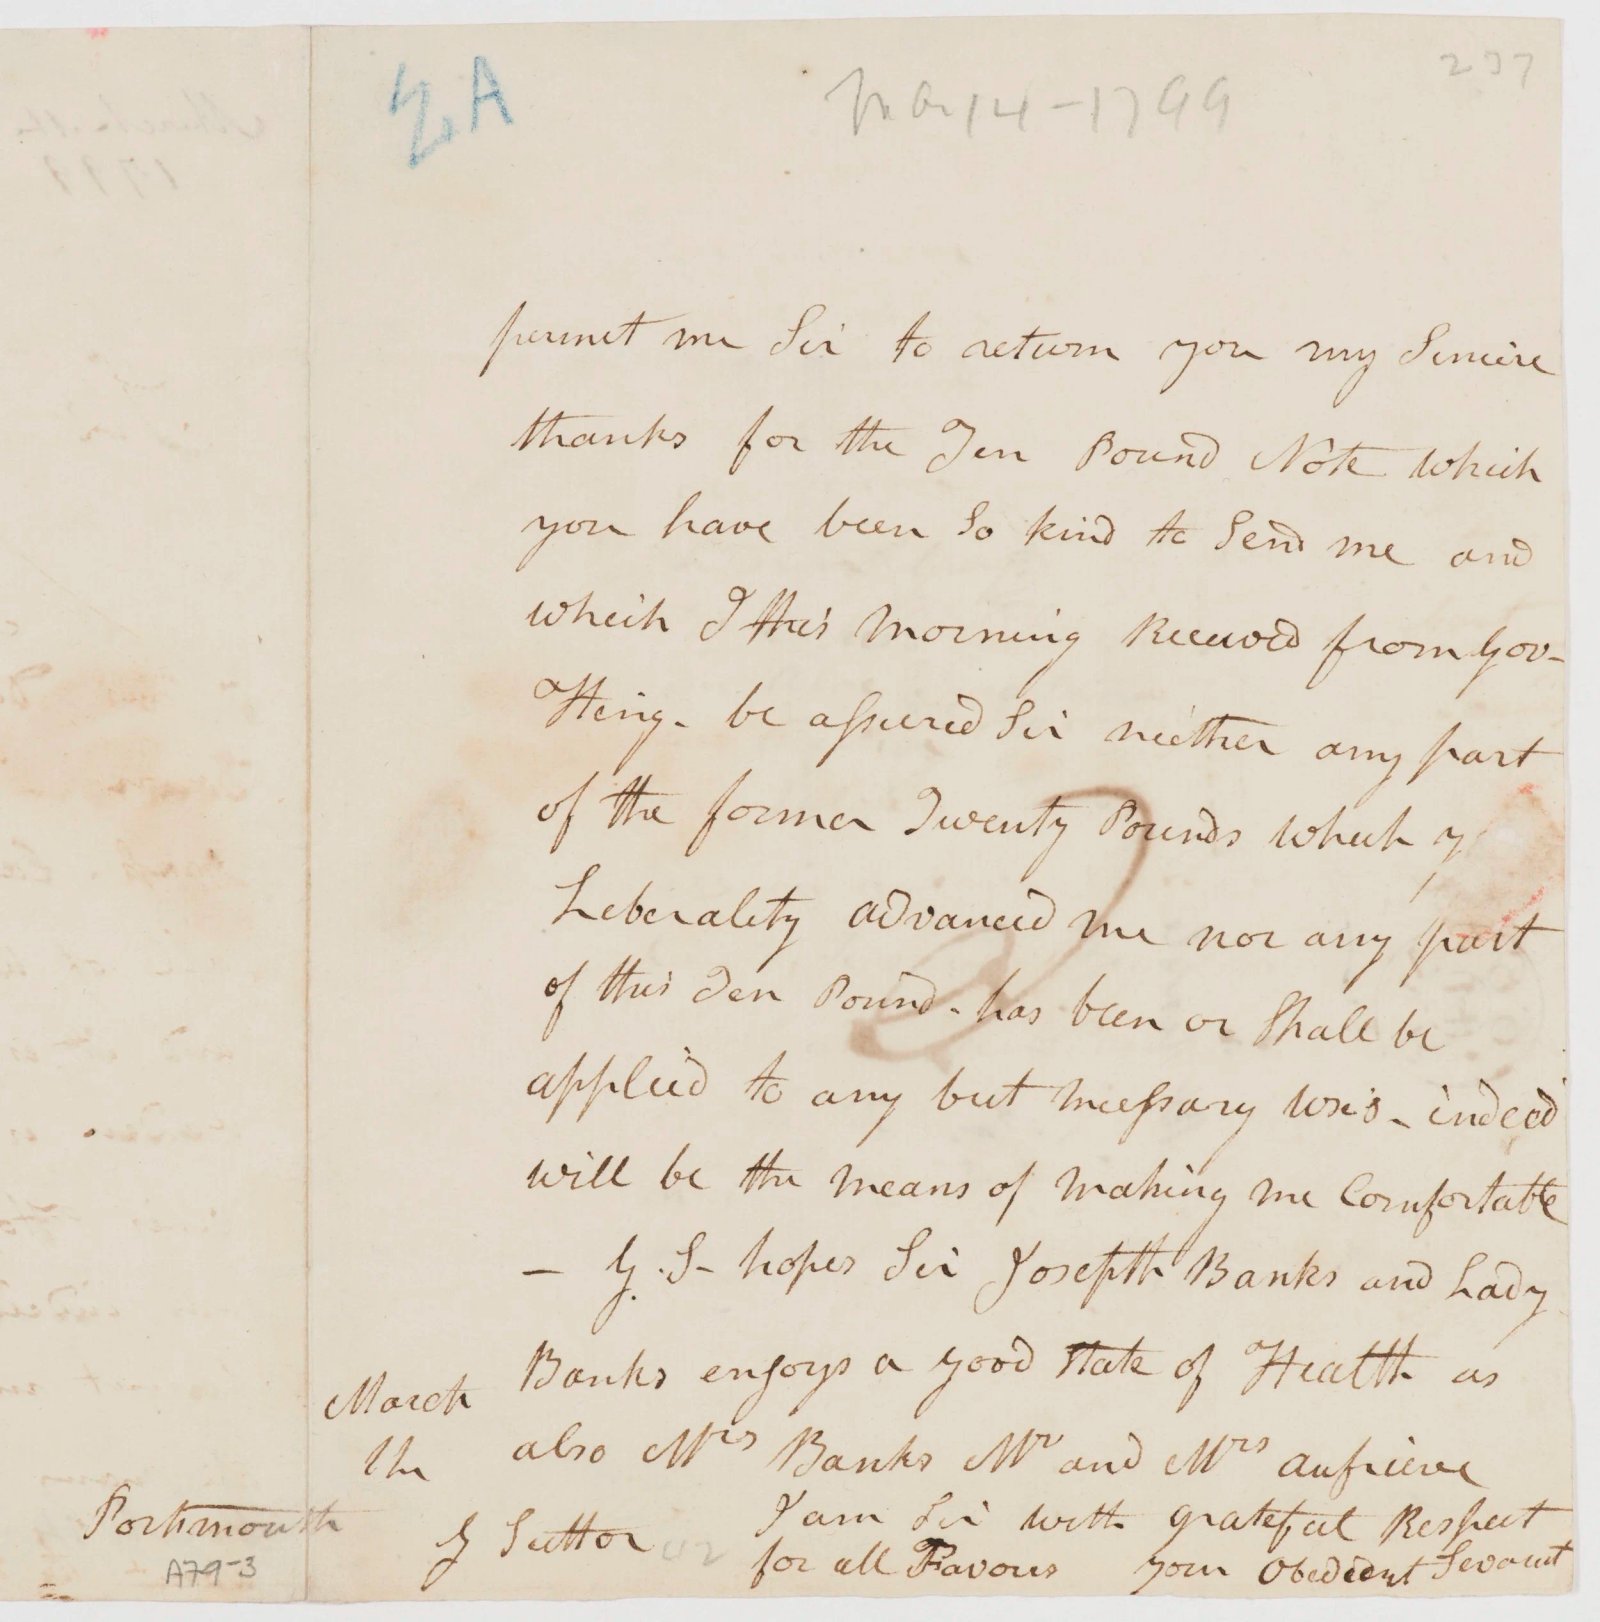 237
Mar 14 - 1799
permit me Sir to return you my Sincire
thanks for the Ten Pound Note which
you have been So kind to Send me and
which I this Morning Received from Gov-
Hing- be assured Sir neither any part
of the former Twenty Pounds which y
Leberality advanced me nor any part
of this Ten Pound - has been or Shall be
applied to any but necessary uses - indeed
will be the Means of Making me Comfortable
- G. S- hopes Sir Joseph Banks and Lady
Banks enjoys a good State of Health as
also Mrs Banks Mr and Mrs aufriere
I am Sir with gratefull Respect
for all Favours your Obedient Sevant
March
Portsmouth
G Suttor
A79-3